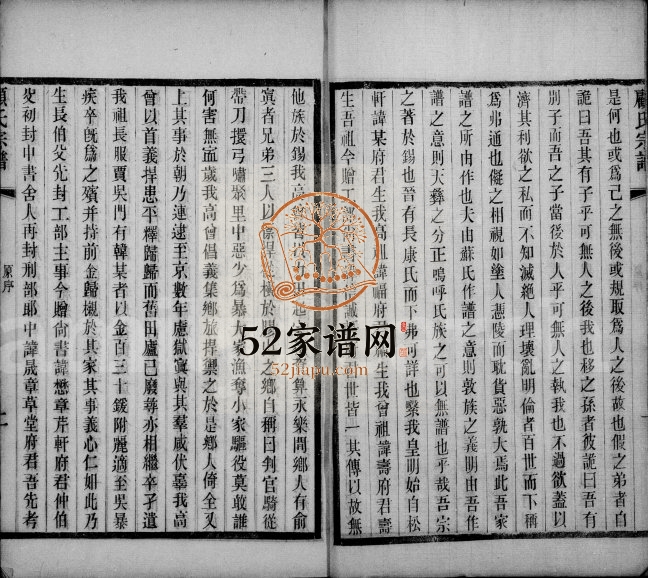 顧氏宗譜
是何也或爲己之無後或規取爲人之後故也假之弟者自
詭曰吾其有子乎可無人之後我也移之孫者彼詭曰吾有
別子而吾之子當後於人乎可無人之執我也不過欲蓋以
濟其利欲之私而不知滅絶人理壞亂明倫者百世而下稱
爲弗通也儗之相視如塗人憑陵而耽貨惡孰大焉此吾家
譜之所由作也夫由蘇氏作譜之意則敦族之義明由吾作
譜之意則天彝之分正嗚呼氏族之可以無譜也乎哉吾宗
之著於錫也晉有長康氏而下弗可詳也繫我皇明始自松
軒諱某府君生我高祖諱 府君 生我曾祖諱壽府君壽
生吾祖今贈工部尚書 誠 世皆一其傳以故無
他族於錫我高 永樂間鄉大有俞
寘者兄弟三人以 之鄉自稱曰判官騎從
帶刀擐弓嘯聚里中惡少爲暴大家漁奪小家驅役莫敢誰
何害無面歲我高曾倡義集鄉旅捍禦之於是鄉人倚全又
上其事於朝乃連逮至京數年慮獄寘與其羣咸伏辜我高
曾以首義捍患平釋歸歸而舊田廬已廢尋亦相繼卒孑遺
我祖長服賈吳門有韓某者以金百三十鍰附麗適至吳暴
疾卒旣爲之殯并持前金歸櫬於其家其事義心仁如此乃
生長伯父先封工部主事今贈尙書諱懋章芹軒府君仲伯
父初封中書舍人再封刑部郎中諱晟章草堂府君吾先考
顧氏宗譜
原序
二
52家谱网
52jiapu.com